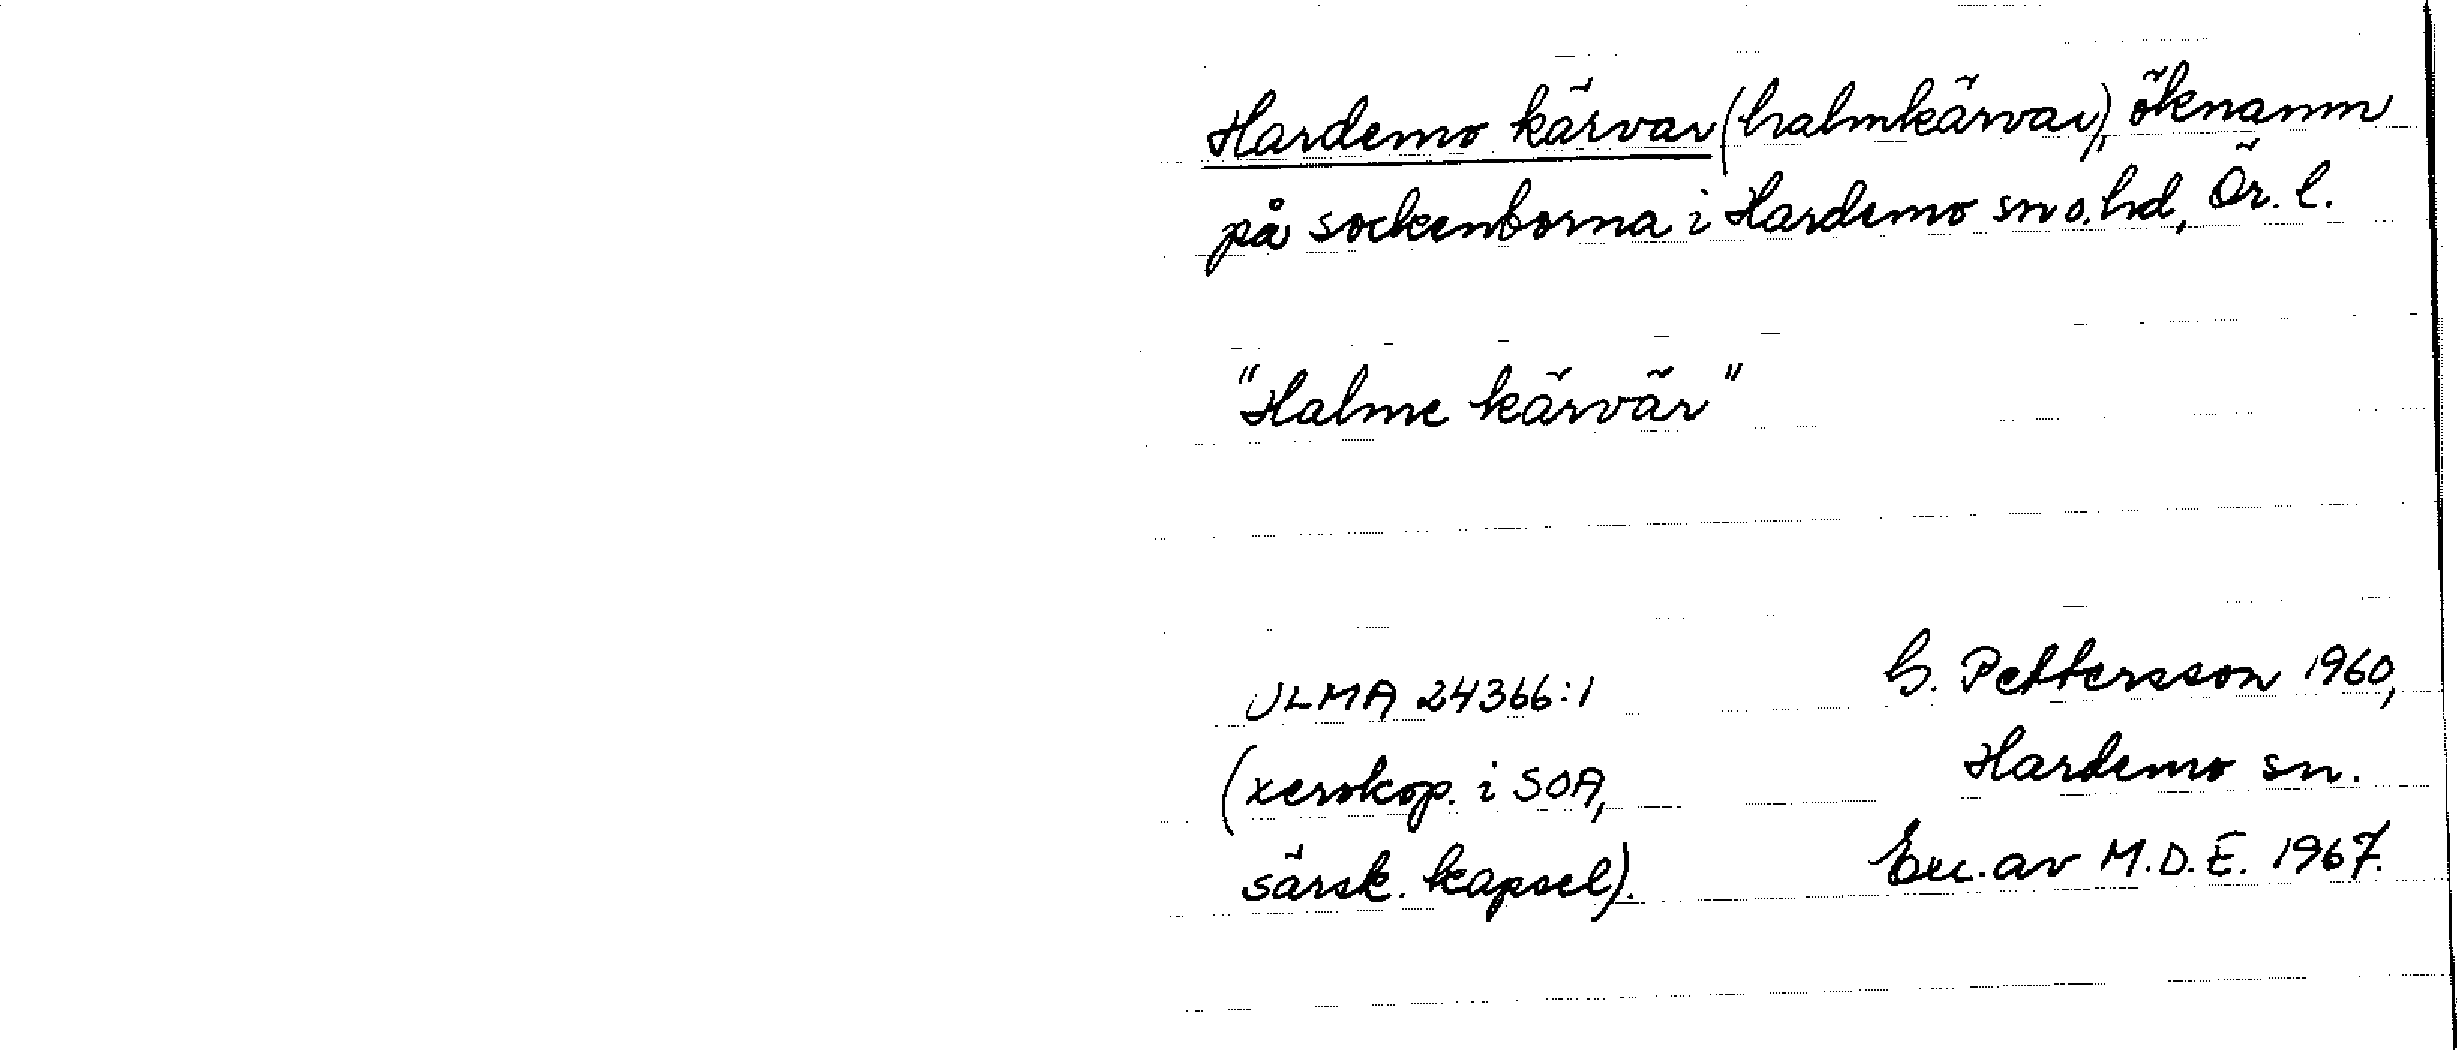 Hardemo kärvar (halmkärvar), öknamn
på sockenborna i Hardemo sn o. hd, Ör. l.
"Halme kärvär"
ULMA 24366:1 G. Pettersson 1960,
(xerokop. i SOA, Hardemo sn.
särsk. kapsel). Exc. av M.D.E. 1967.